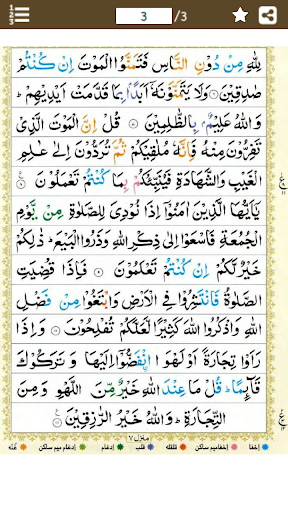 3 /3
لِلّٰهِ مِنْ دُوْنِ النَّاسِ فَتَمَنَّوُا الْمَوْتَ اِنْ كُنْتُمْ
صٰدِقِيْنَ ۞ وَلَا يَتَمَنَّوْنَهٗۤ اَبَدًۢا بِمَا قَدَّمَتْ اَيْدِيْهِمْ ؕ
وَاللّٰهُ عَلِيْمٌۢ بِالظّٰلِمِيْنَ ۞ قُلْ اِنَّ الْمَوْتَ الَّذِيْ
تَفِرُّوْنَ مِنْهُ فَاِنَّهٗ مُلٰقِيْكُمْ ثُمَّ تُرَدُّوْنَ اِلٰى عٰلِمِ
الْغَيْبِ وَالشَّهَادَةِ فَيُنَبِّئُكُمْ بِمَا كُنْتُمْ تَعْمَلُوْنَ ۞
يٰۤاَيُّهَا الَّذِيْنَ اٰمَنُوْۤا اِذَا نُوْدِيَ لِلصَّلٰوةِ مِنْ يَّوْمِ
الْجُمُعَةِ فَاسْعَوْا اِلٰى ذِكْرِ اللّٰهِ وَذَرُوا الْبَيْعَ ؕ ذٰلِكُمْ
خَيْرٌ لَّكُمْ اِنْ كُنْتُمْ تَعْلَمُوْنَ ۞ فَاِذَا قُضِيَتِ
الصَّلٰوةُ فَانْتَشِرُوْا فِي الْاَرْضِ وَابْتَغُوْا مِنْ فَضْلِ
اللّٰهِ وَاذْكُرُوا اللّٰهَ كَثِيْرًا لَّعَلَّكُمْ تُفْلِحُوْنَ ۞ وَاِذَا
رَاَوْا تِجَارَةً اَوْ لَهْوَا۟ انْفَضُّوْۤا اِلَيْهَا وَتَرَكُوْكَ
قَآئِمًا ؕ قُلْ مَا عِنْدَ اللّٰهِ خَيْرٌ مِّنَ اللَّهْوِ وَمِنَ
التِّجَارَةِ ؕ وَاللّٰهُ خَيْرُ الرّٰزِقِيْنَ ۞
منزل ٧
اخفا اخفامیم ساکن قلقله قلب ادغام ادغام میم ساکن غُنّه